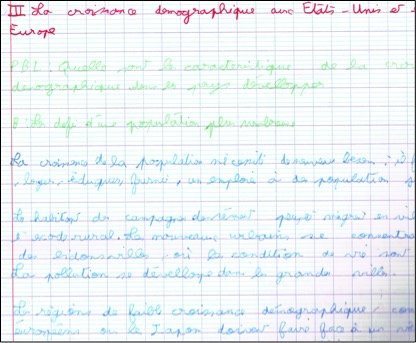 III La croissance demographique aux Etats-Unis et
Europe
PBL : Quelle sont la caracteristique de la croi
demographique dans les pays développer
B: Le defi d'une population plus nombreuse
La croissance de la population nécessit de nouveau besoin :
, loger, éduquer, fournir, un emploie à des population
Le habitant de campagne de
l'exod rural. Le nouveau urbains se concentre
des bidonvilles où la condition de vie son
La pollution se développe dans la grande ville.
Les régions de faible croissance démographique, com
européens ou le Japon doivent faire face à un